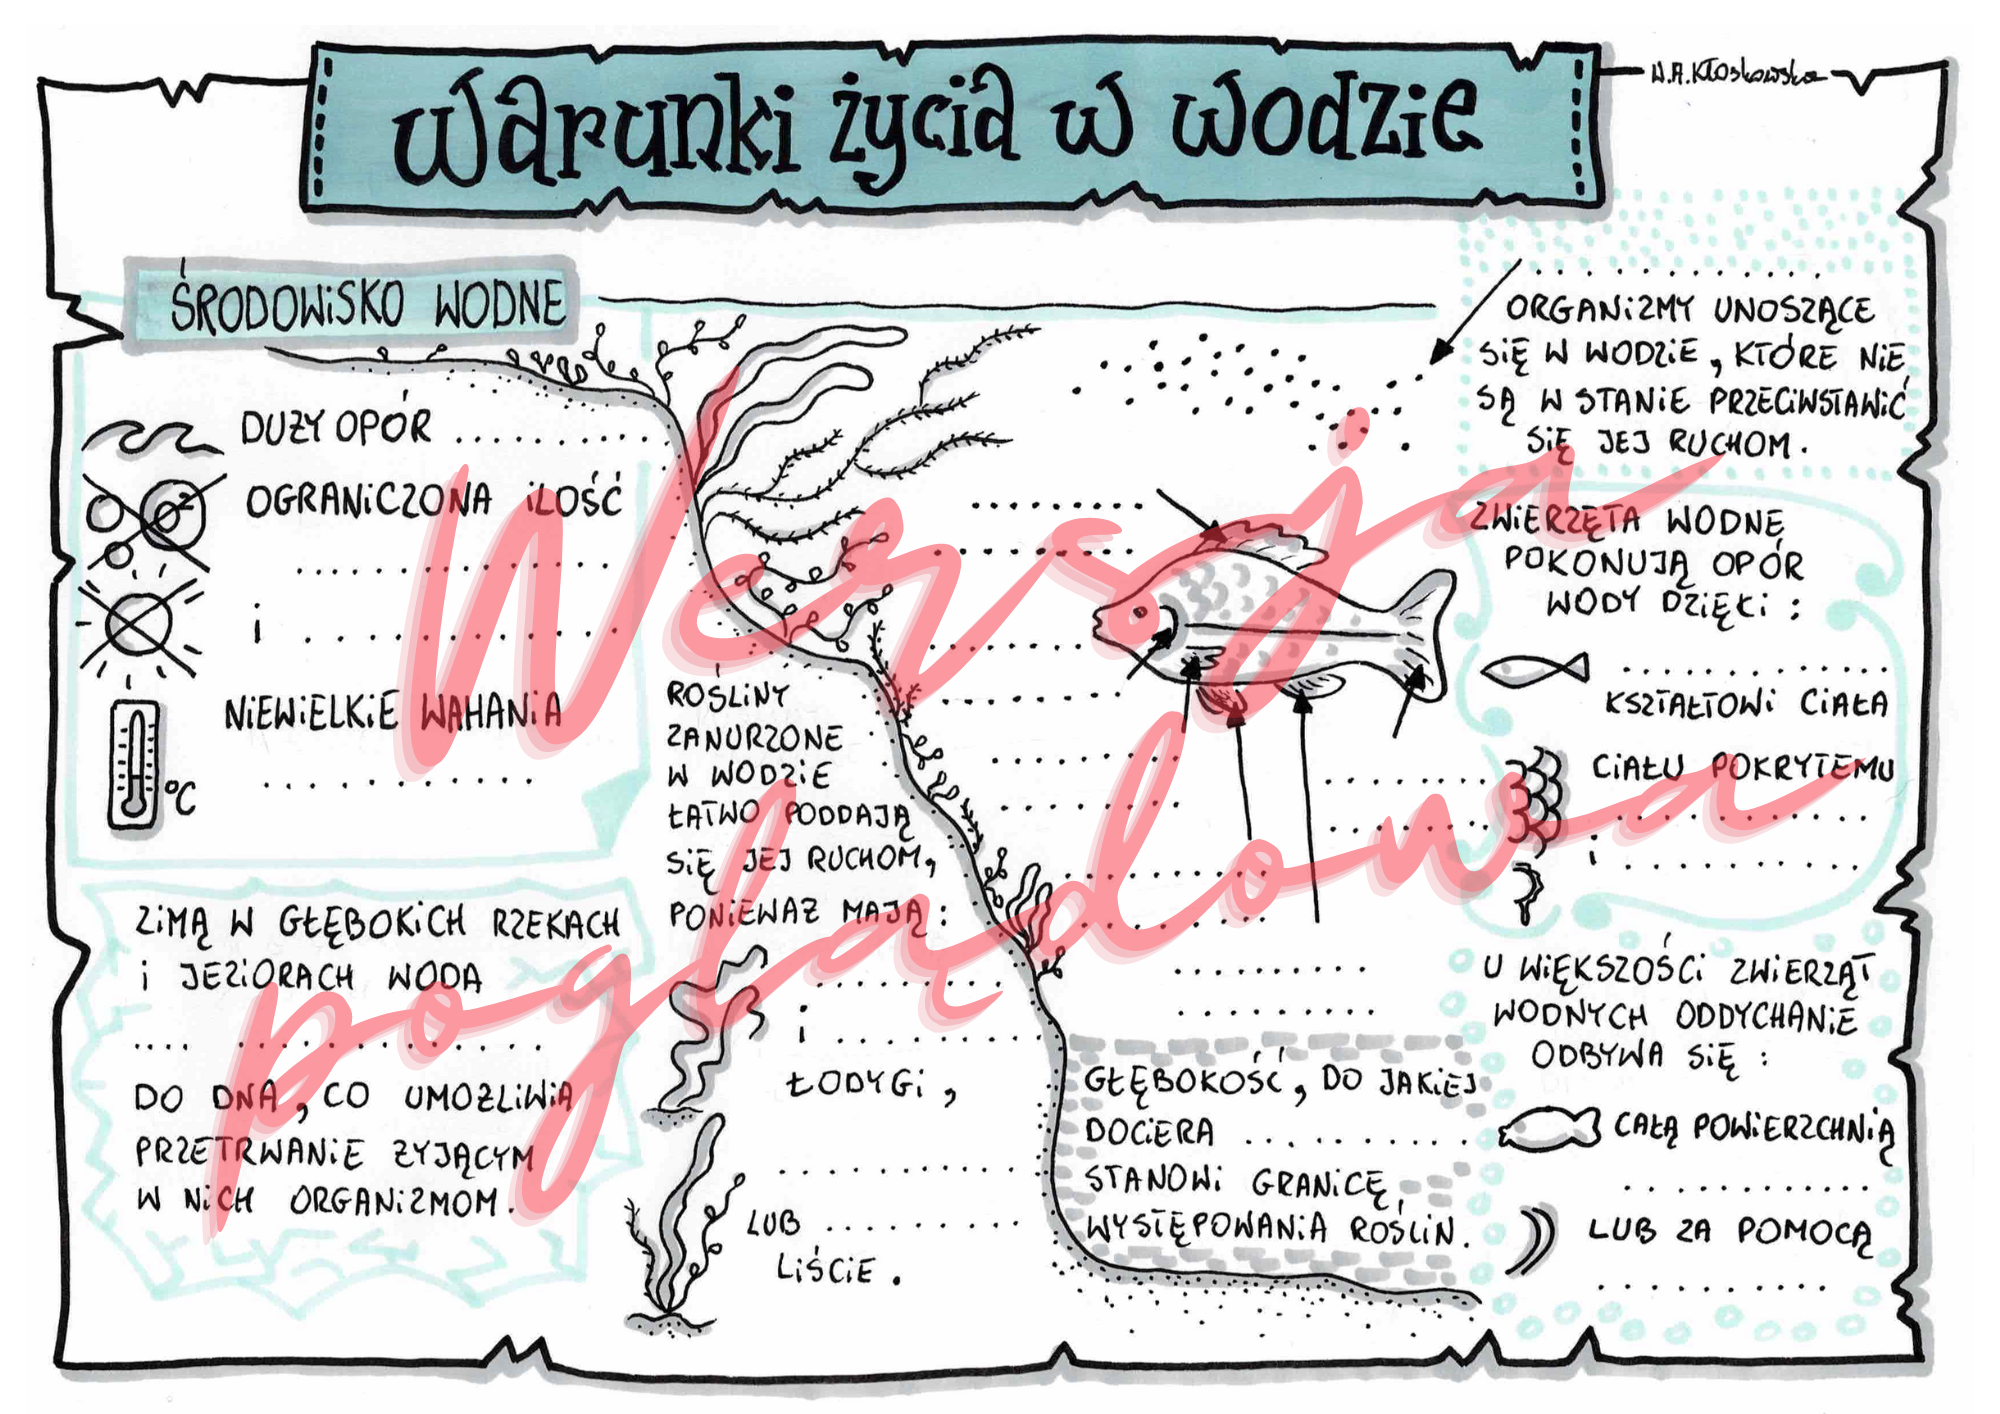 Warunki życia w wodzie
W.A.Kłoskowska
ŚRODOWISKO WODNE
DUŻY OPÓR ..............
OGRANICZONA ILOŚĆ
..................
i ..................
NIEWIELKIE WAHANIA
°C ...............
ZIMĄ W GŁĘBOKICH RZEKACH
i JEZIORACH WODA
.... ................
DO DNA, CO UMOŻLIWIA
PRZETRWANIE ŻYJĄCYM
W NICH ORGANIZMOM.
ROŚLINY
ZANURZONE
W WODZIE
ŁATWO PODDAJĄ
SIĘ JEJ RUCHOM,
PONIEWAŻ MAJĄ:
..............
i ..............
ŁODYGI,
................
LUB .............
LIŚCIE.
GŁĘBOKOŚĆ, DO JAKIEJ
DOCIERA ............
STANOWI GRANICĘ
WYSTĘPOWANIA ROŚLIN.
..............
ORGANIZMY UNOSZĄCE
SIĘ W WODZIE, KTÓRE NIE
SĄ W STANIE PRZECIWSTAWIĆ
SIĘ JEJ RUCHOM.
ZWIERZĘTA WODNE
POKONUJĄ OPÓR
WODY DZIĘKI:
................
KSZTAŁTOWI CIAŁA
CIAŁU POKRYTEMU
................
i ..............
U WIĘKSZOŚCI ZWIERZĄT
WODNYCH ODDYCHANIE
ODBYWA SIĘ:
CAŁĄ POWIERZCHNIĄ
..............
LUB ZA POMOCĄ
.............
Wersja
poglądowa